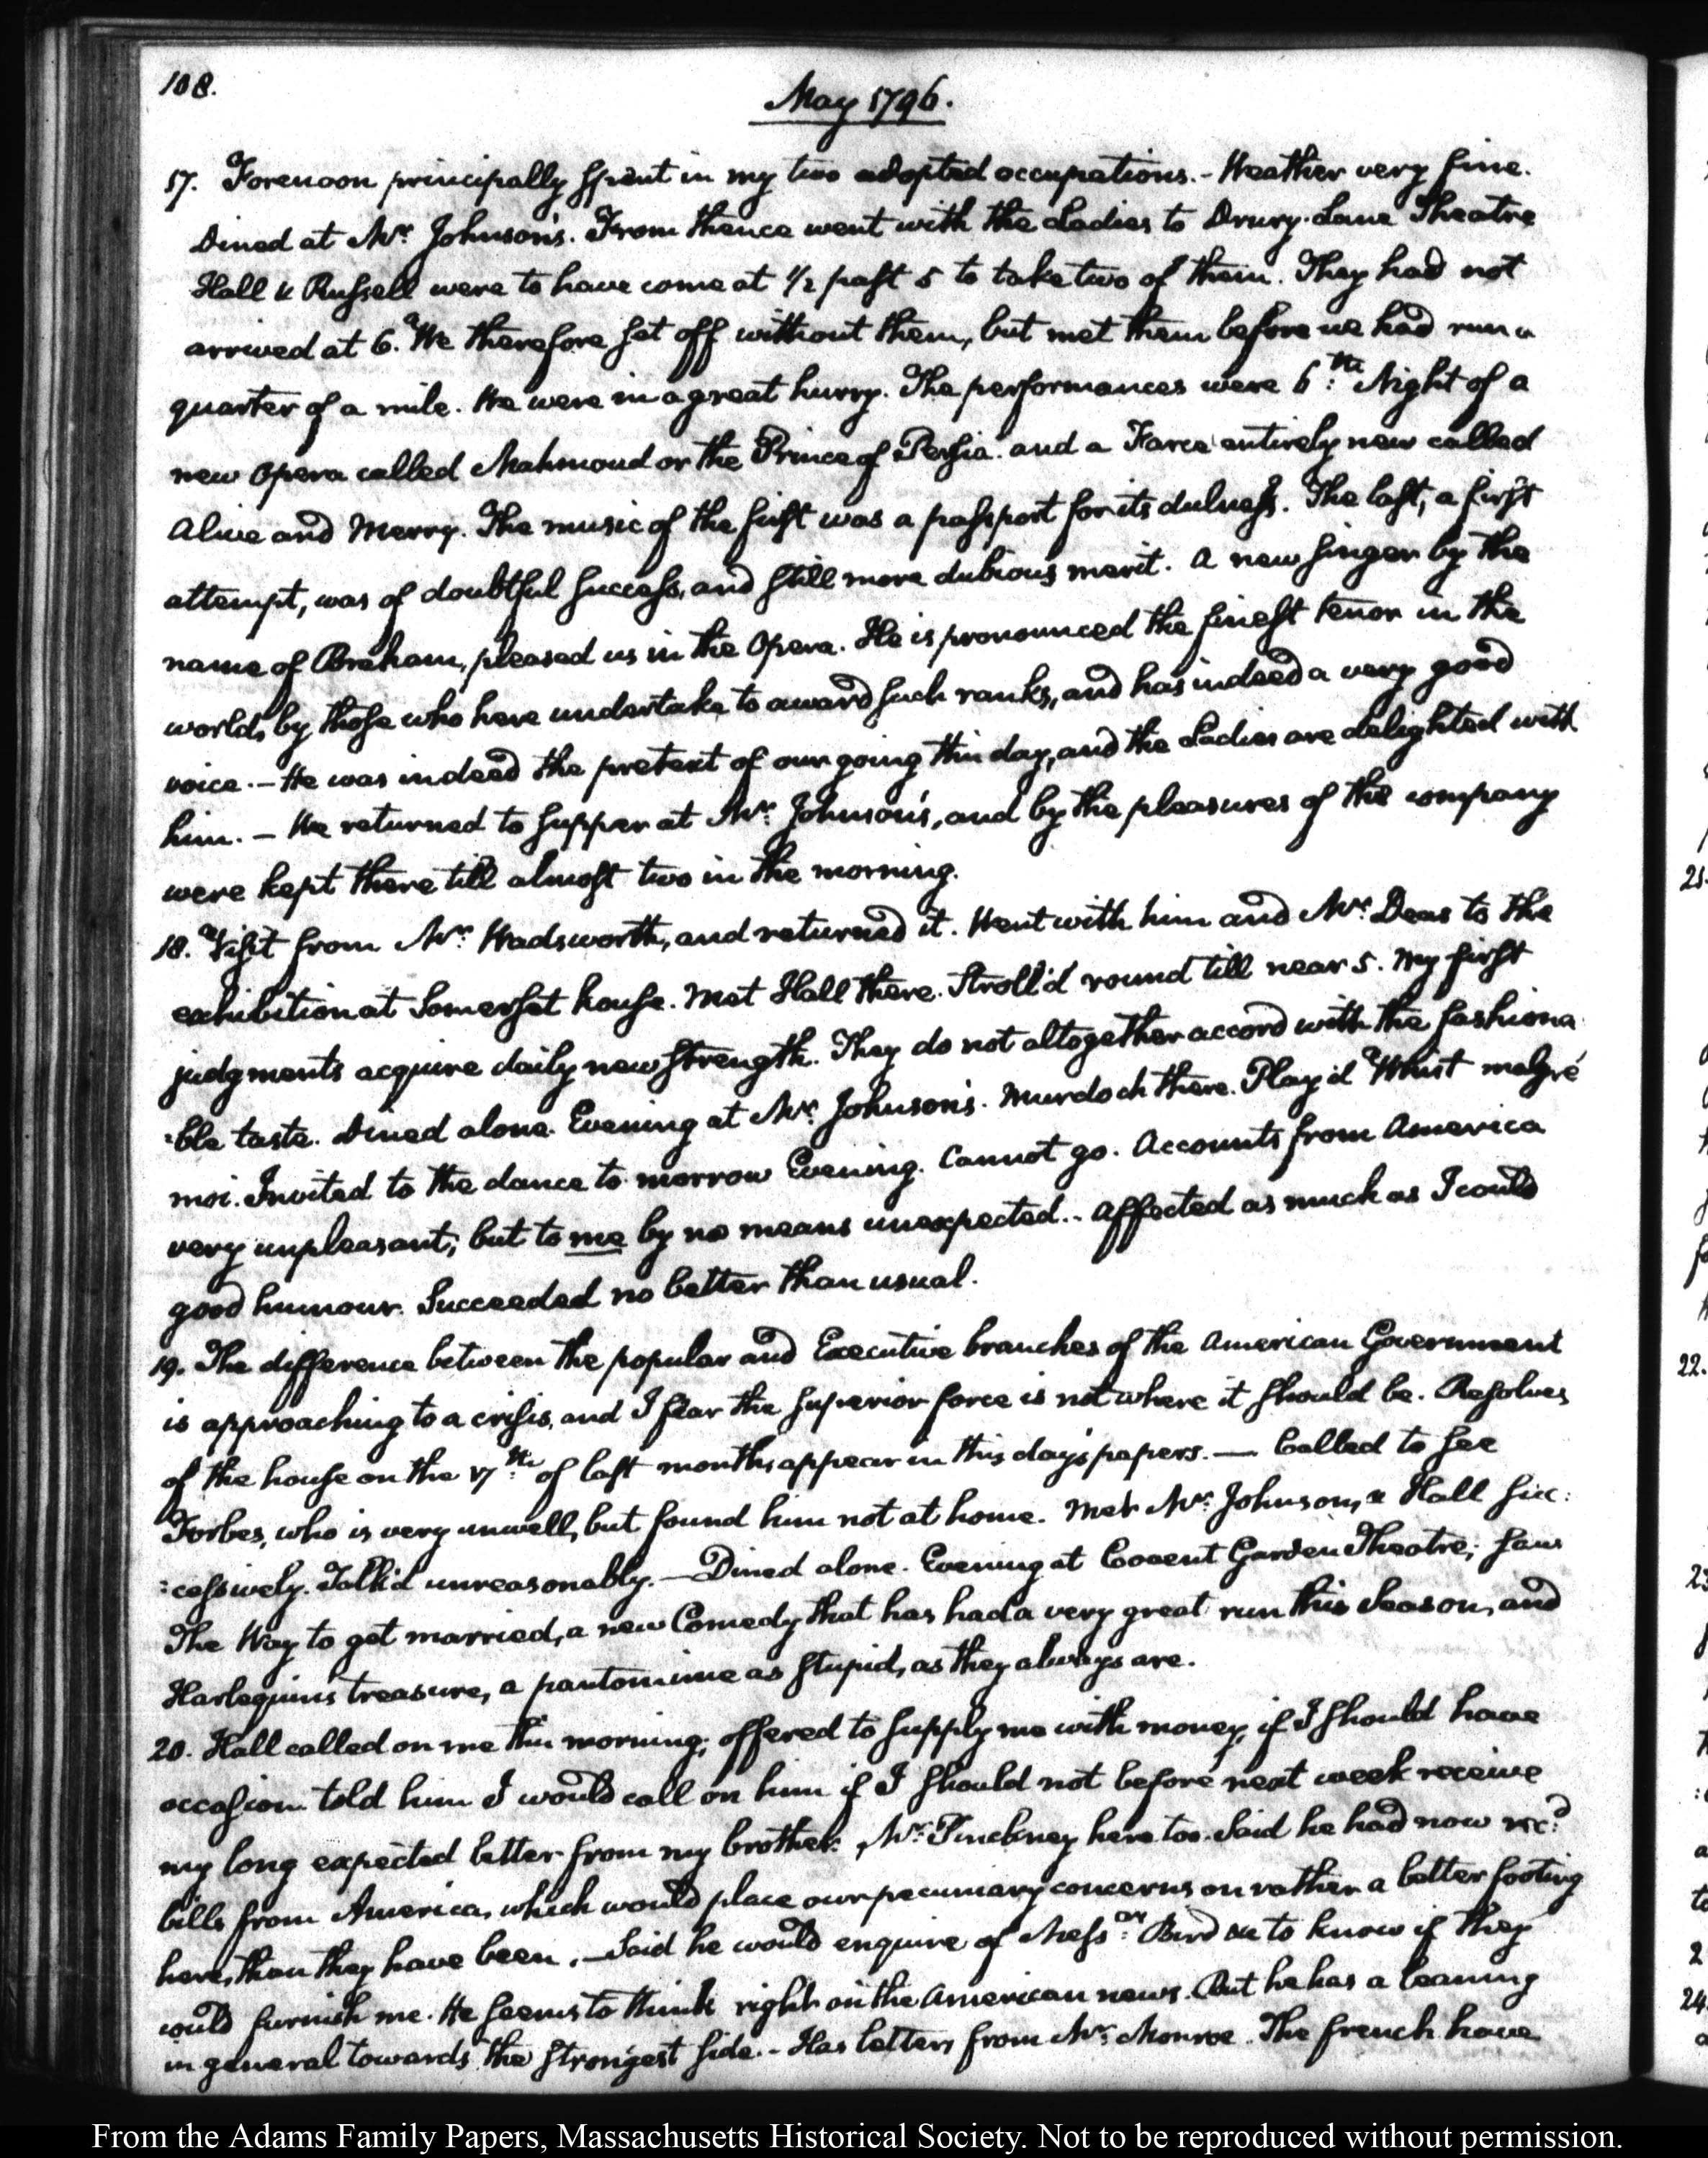 108.
May 1796.
17. Forenoon principally spent in my two adopted occupations. - Weather very fine.
Dined at Mr: Johnson's. From thence went with the Ladies to Drury-Lane Theatre
Hall & Russell were to have come at 1/2 past 5 to take two of them. They had not
arrived at 6. We therefore set off without them, but met them before we had run a
quarter of a mile. We were in a great hurry. The performances were 6:th Night of a
new Opera called Mahmoud or the Prince of Persia. and a Farce entirely new called
Alive and Merry. The music of the first was a passport for its dulness. The last, a first
attempt, was of doubtful success, and still more dubious merit. A new singer by the
name of Braham, pleased us in the Opera. He is pronounced the finest tenor in the
world, by those who here undertake to award such ranks, and has indeed a very good
voice. - He was indeed the pretext of our going this day, and the Ladies are delighted with
him. - We returned to supper at Mr: Johnson's, and by the pleasures of the company
were kept there till almost two in the morning.
18. Visit from Mr: Wadsworth, and returned it. Went with him and Mr: Deas to the
exhibition at Somerset house. Met Hall there. Stroll'd round till near 5. My first
judgments acquire daily new strength. They do not altogether accord with the fashiona
:ble taste. Dined alone. Evening at Mr: Johnson's. Murdoch there. Play'd Whist malgré
moi. Invited to the dance to-morrow Evening. Cannot go. Accounts from America
very unpleasant; but to me by no means unexpected. - Affected as much as I could
good humour. Succeeded no better than usual.
19. The difference between the popular and Executive branches of the American Government
is approaching to a crisis, and I fear the superior force is not where it should be. Resolves
of the house on the 17:th of last month, appear in this day's papers. — Called to see
Forbes, who is very unwell, but found him not at home. Met Mr: Johnson, & Hall suc:
:cessively. Talk'd unreasonably. — Dined alone. Evening at Covent Garden Theatre; saw
The Way to get married, a new Comedy that has had a very great run this Season, and
Harlequin's treasure, a pantomime as stupid, as they always are.
20. Hall called on me this morning; offered to supply me with money, if I should have
occasion told him I would call on him if I should not before next week receive
my long expected letter from my brother. Mr: Pinckney here too. Said he had now rec:d
bills from America, which would place our pecuniary concerns on rather a better footing
here, than they have been. — Said he would enquire of Mess:rs Bird &c to know if they
would furnish me. He seems to think right on the American news. But he has a leaning
in general towards the strongest side. - Has letters from Mr: Monroe. The french have
21.
22.
23
2
24
From the Adams Family Papers, Massachusetts Historical Society. Not to be reproduced without permission.